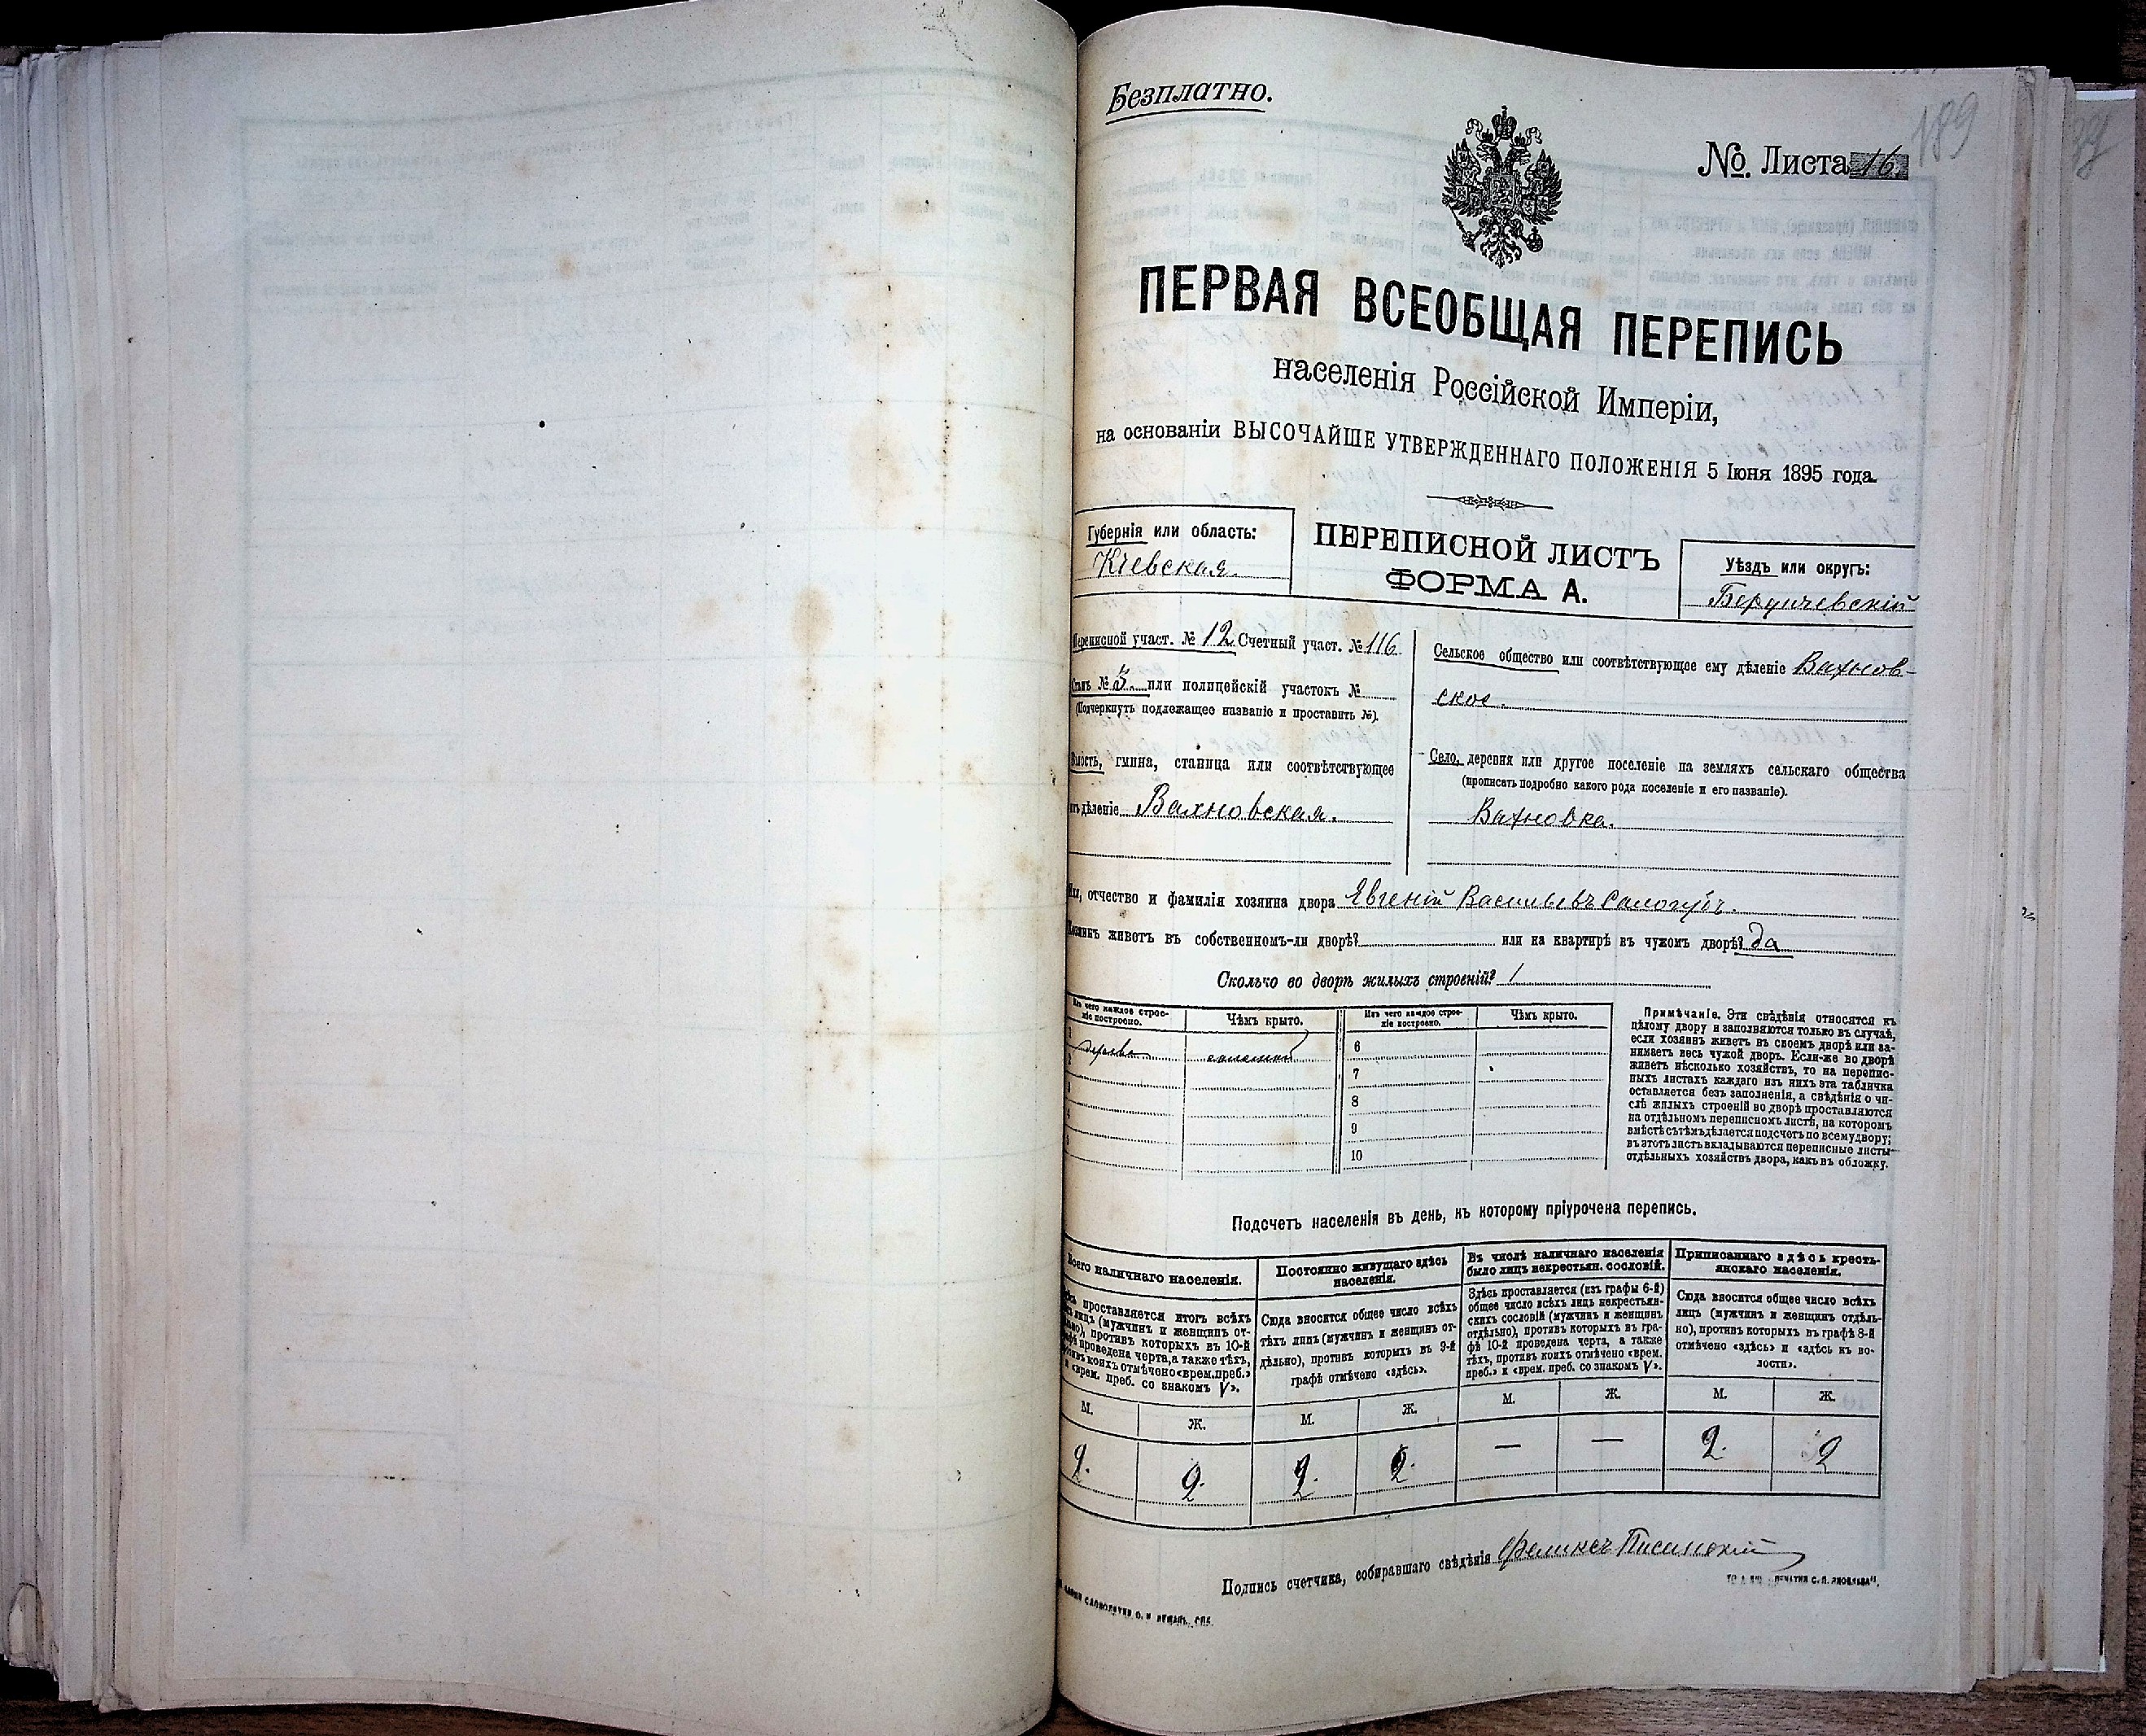 Безплатно.
189
№. Листа 16.
ПЕРВАЯ ВСЕОБЩАЯ ПЕРЕПИСЬ
населенія Россійской Имперіи,
на основаніи ВЫСОЧАЙШЕ УТВЕРЖДЕННАГО ПОЛОЖЕНІЯ 5 Іюня 1895 года.
Губернія или область:
Кіевская.
ПЕРЕПИСНОЙ ЛИСТЪ
ФОРМА А.
Уѣздъ или округъ:
Бердичевскій
Переписной участ. № 12 Счетный участ. № 116
Станъ № 3. или полицейскій участокъ №
(Подчеркнуть подлежащее названіе и проставить №).
Волость, гмина, станица или соотвѣтствующее
имъ дѣленіе Вахновская.
Сельское общество или соотвѣтствующее ему дѣленіе Вахнов-
ское.
Село, деревня или другое поселеніе на земляхъ сельскаго общества
(прописать подробно какого рода поселеніе и его названіе).
Вахновка.
Имя, отчество и фамилія хозяина двора Евгеній Васильевъ
Хозяинъ животъ въ собственномъ-ли дворѣ? или на квартирѣ въ чужомъ дворѣ? да
Сколько во дворѣ жилыхъ строеній? 1
Изъ чего каждое строе-
ніе построено.
Чѣмъ крыто.
Изъ чего каждое строе-
ніе построено.
Чѣмъ крыто.
1 дерева соломой
2
3
4
5
6
7
8
9
10
Примѣчаніе. Эти свѣдѣнія относятся къ
цѣлому двору и заполняются только въ случаѣ,
если хозяинъ живетъ въ своемъ дворѣ или за-
нимаетъ весь чужой дворъ. Если-же во дворѣ
живетъ нѣсколько хозяйствъ, то на перепис-
ныхъ листахъ каждаго изъ нихъ эта табличка
оставляется безъ заполненія, а свѣдѣнія о чи-
слѣ жилыхъ строеній во дворѣ проставляются
на отдѣльномъ переписномъ листѣ, на которомъ
вмѣстѣ съ тѣмъ дѣлается подсчетъ по всему двору;
въ этотъ листъ вкладываются переписные листы
отдѣльныхъ хозяйствъ двора, какъ въ обложку.
Подсчетъ населенія въ день, къ которому пріурочена перепись.
Всего наличнаго населенія.
Здѣсь проставляется итогъ всѣхъ
тѣхъ лицъ (мужчинъ и женщинъ от-
дѣльно), противъ которыхъ въ 10-й
графѣ проведена черта, а также тѣхъ,
противъ коихъ отмѣчено «врем. преб.»
и «врем. преб. со знакомъ V».
Постоянно живущаго здѣсь
населенія.
Сюда вносится общее число всѣхъ
тѣхъ лицъ (мужчинъ и женщинъ от-
дѣльно), противъ которыхъ въ 9-й
графѣ отмѣчено «здѣсь».
Въ числѣ наличнаго населенія
было лицъ некрестьян. сословій.
Здѣсь проставляется (изъ графы 6-й)
общее число всѣхъ лицъ некрестьян-
скихъ сословій (мужчинъ и женщинъ
отдѣльно), противъ которыхъ въ гра-
фѣ 10-й проведена черта, а также
тѣхъ, противъ коихъ отмѣчено «врем.
преб.» и «врем. преб. со знакомъ V».
Приписаннаго здѣсь кресть-
янскаго населенія.
Сюда вносится общее число всѣхъ
лицъ (мужчинъ и женщинъ отдѣль-
но), противъ которыхъ въ графѣ 8-й
отмѣчено «здѣсь» и «здѣсь къ во-
лости».
М. Ж. М. Ж. М. Ж. М. Ж.
2. 2. 2. 2. — — 2. 2
Подпись счетчика, собиравшаго свѣдѣнія Феликсъ